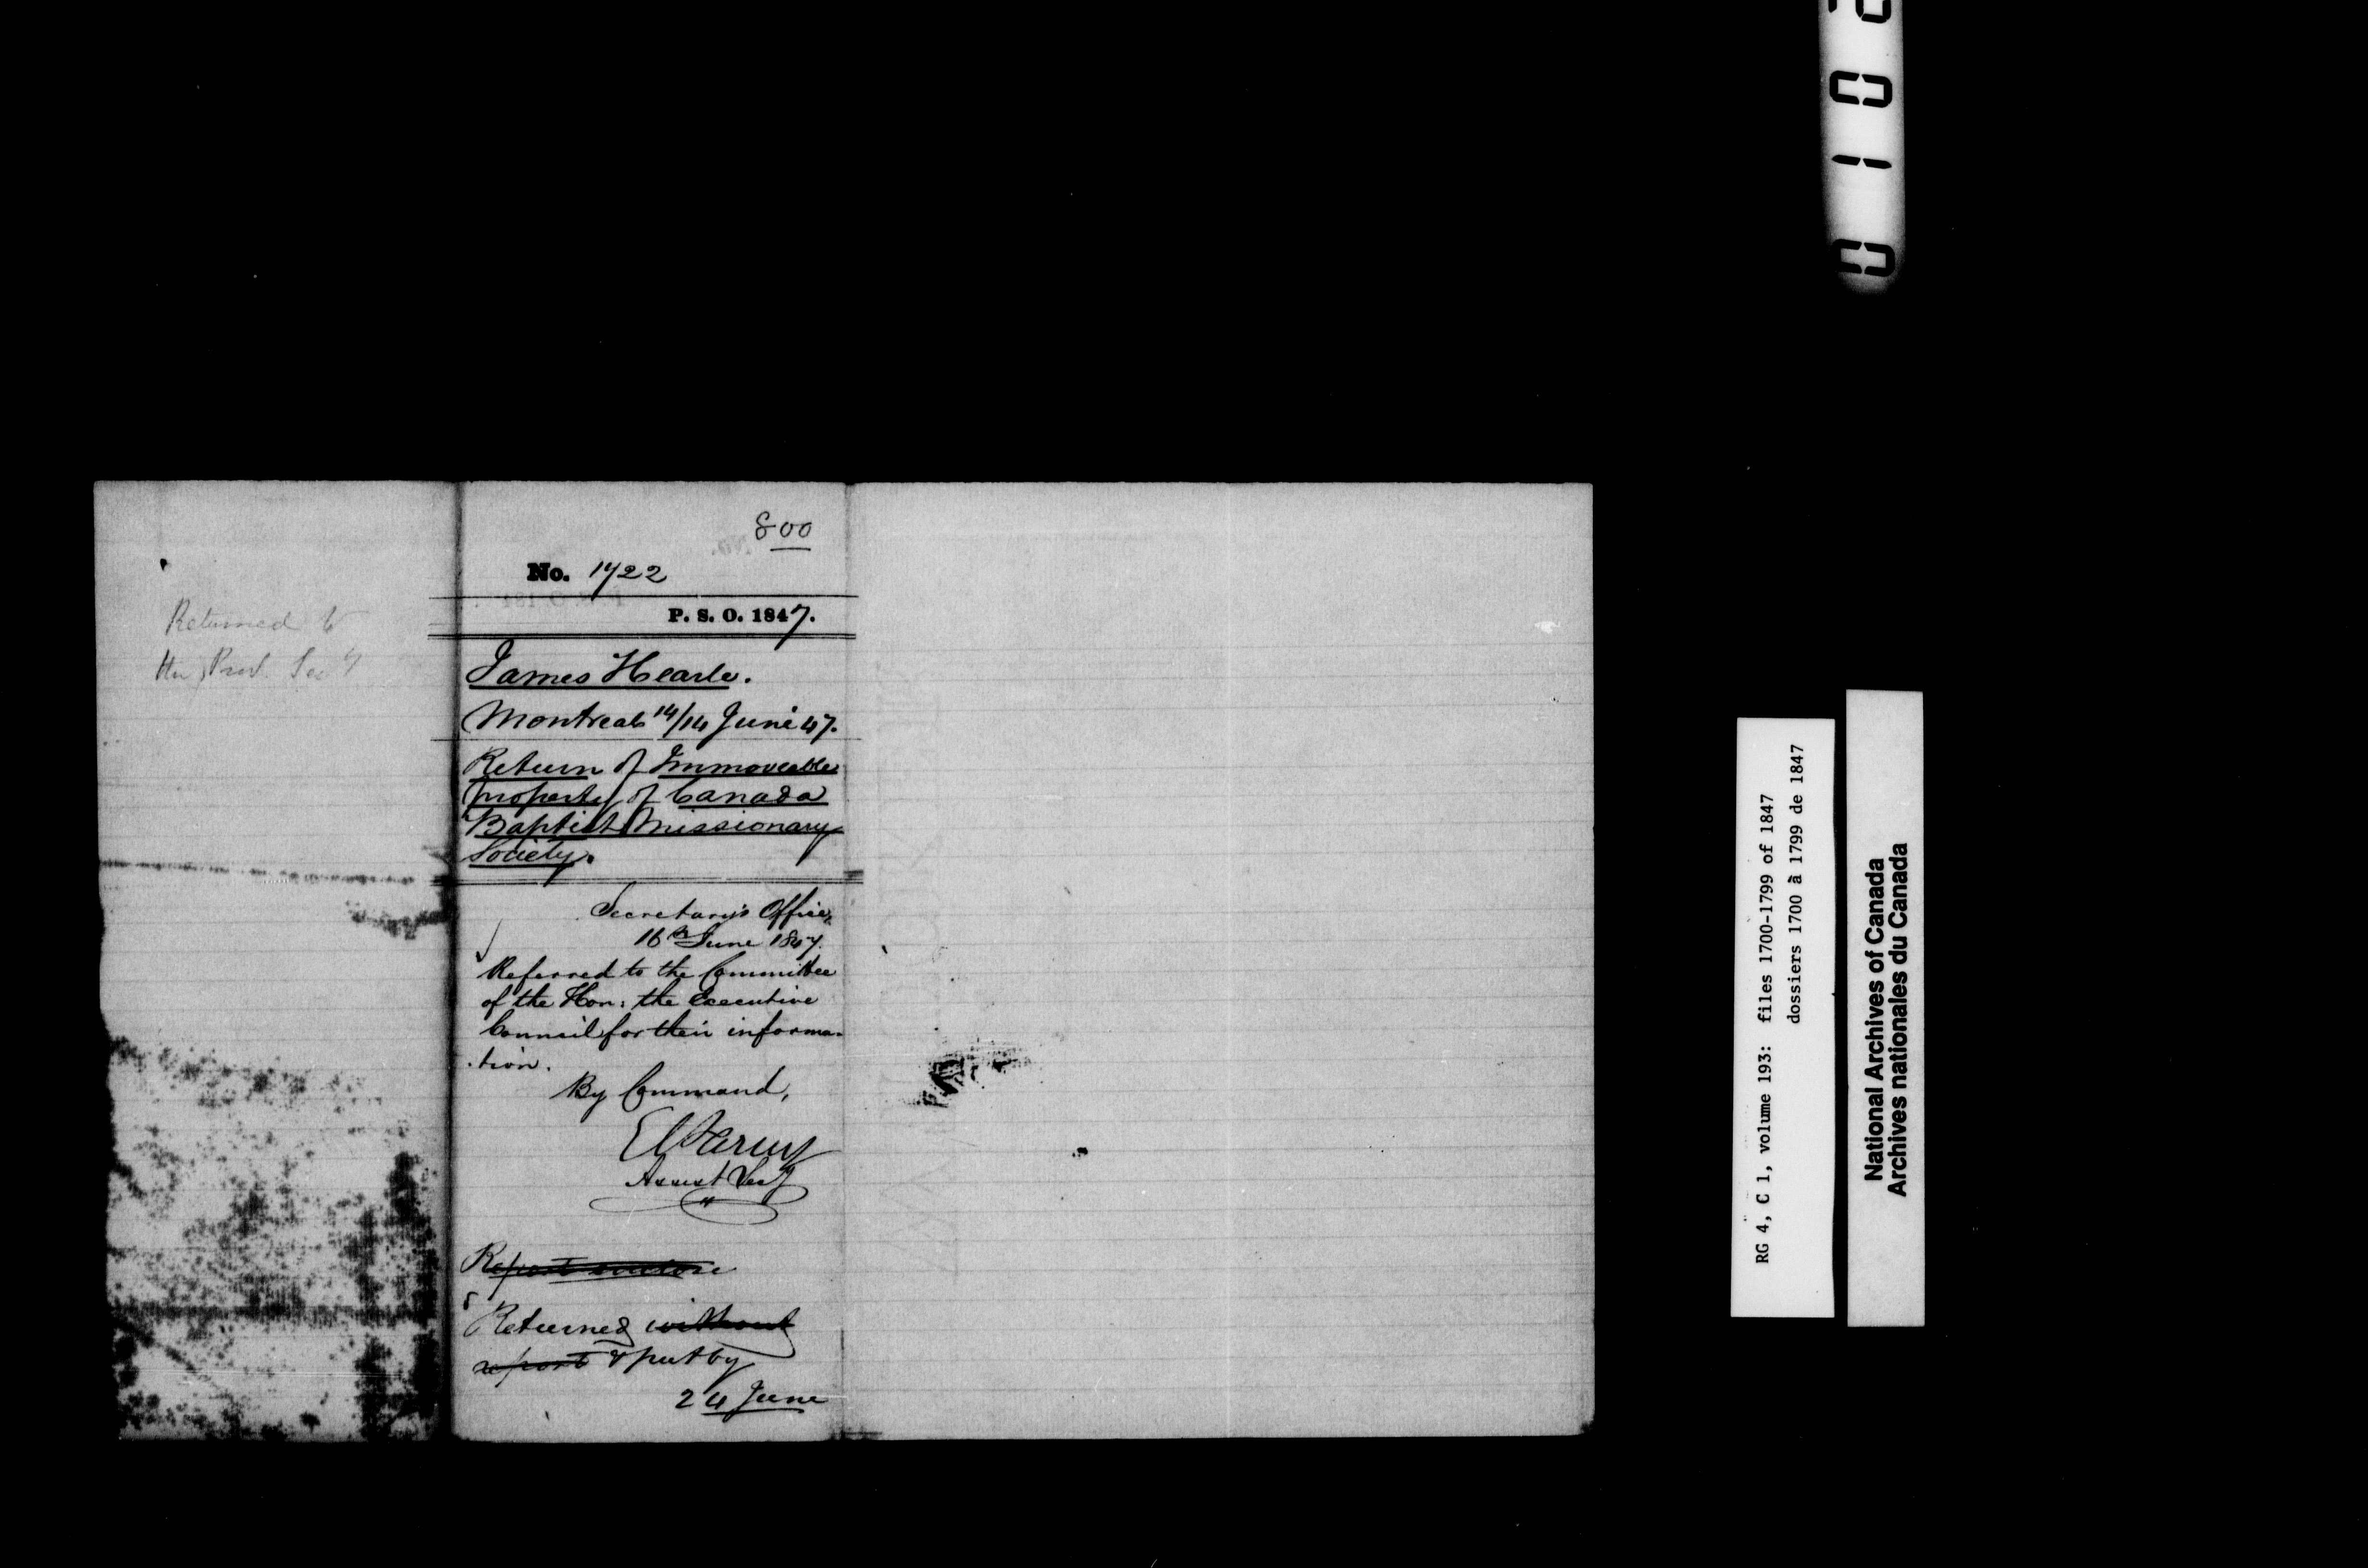 Returned to
the Prov. Secy
800
No. 1722
P. S. O. 1847.
James Hearle.
Montreal 14/14 June 47.
Return of Immoveable
property of Canada
Baptist Missionary
Society.
Secretary's Office,
16th June 1847.
Referred to the Committee
of the Hon: the Executive
Council for their informa-
-tion.
By Command,
Assist Secy
Report
Returned without
report & put by
24 June
RG 4, C 1, volume 193: files 1700-1799 of 1847
dossiers 1700 à 1799 de 1847
National Archives of Canada
Archives nationales du Canada
010